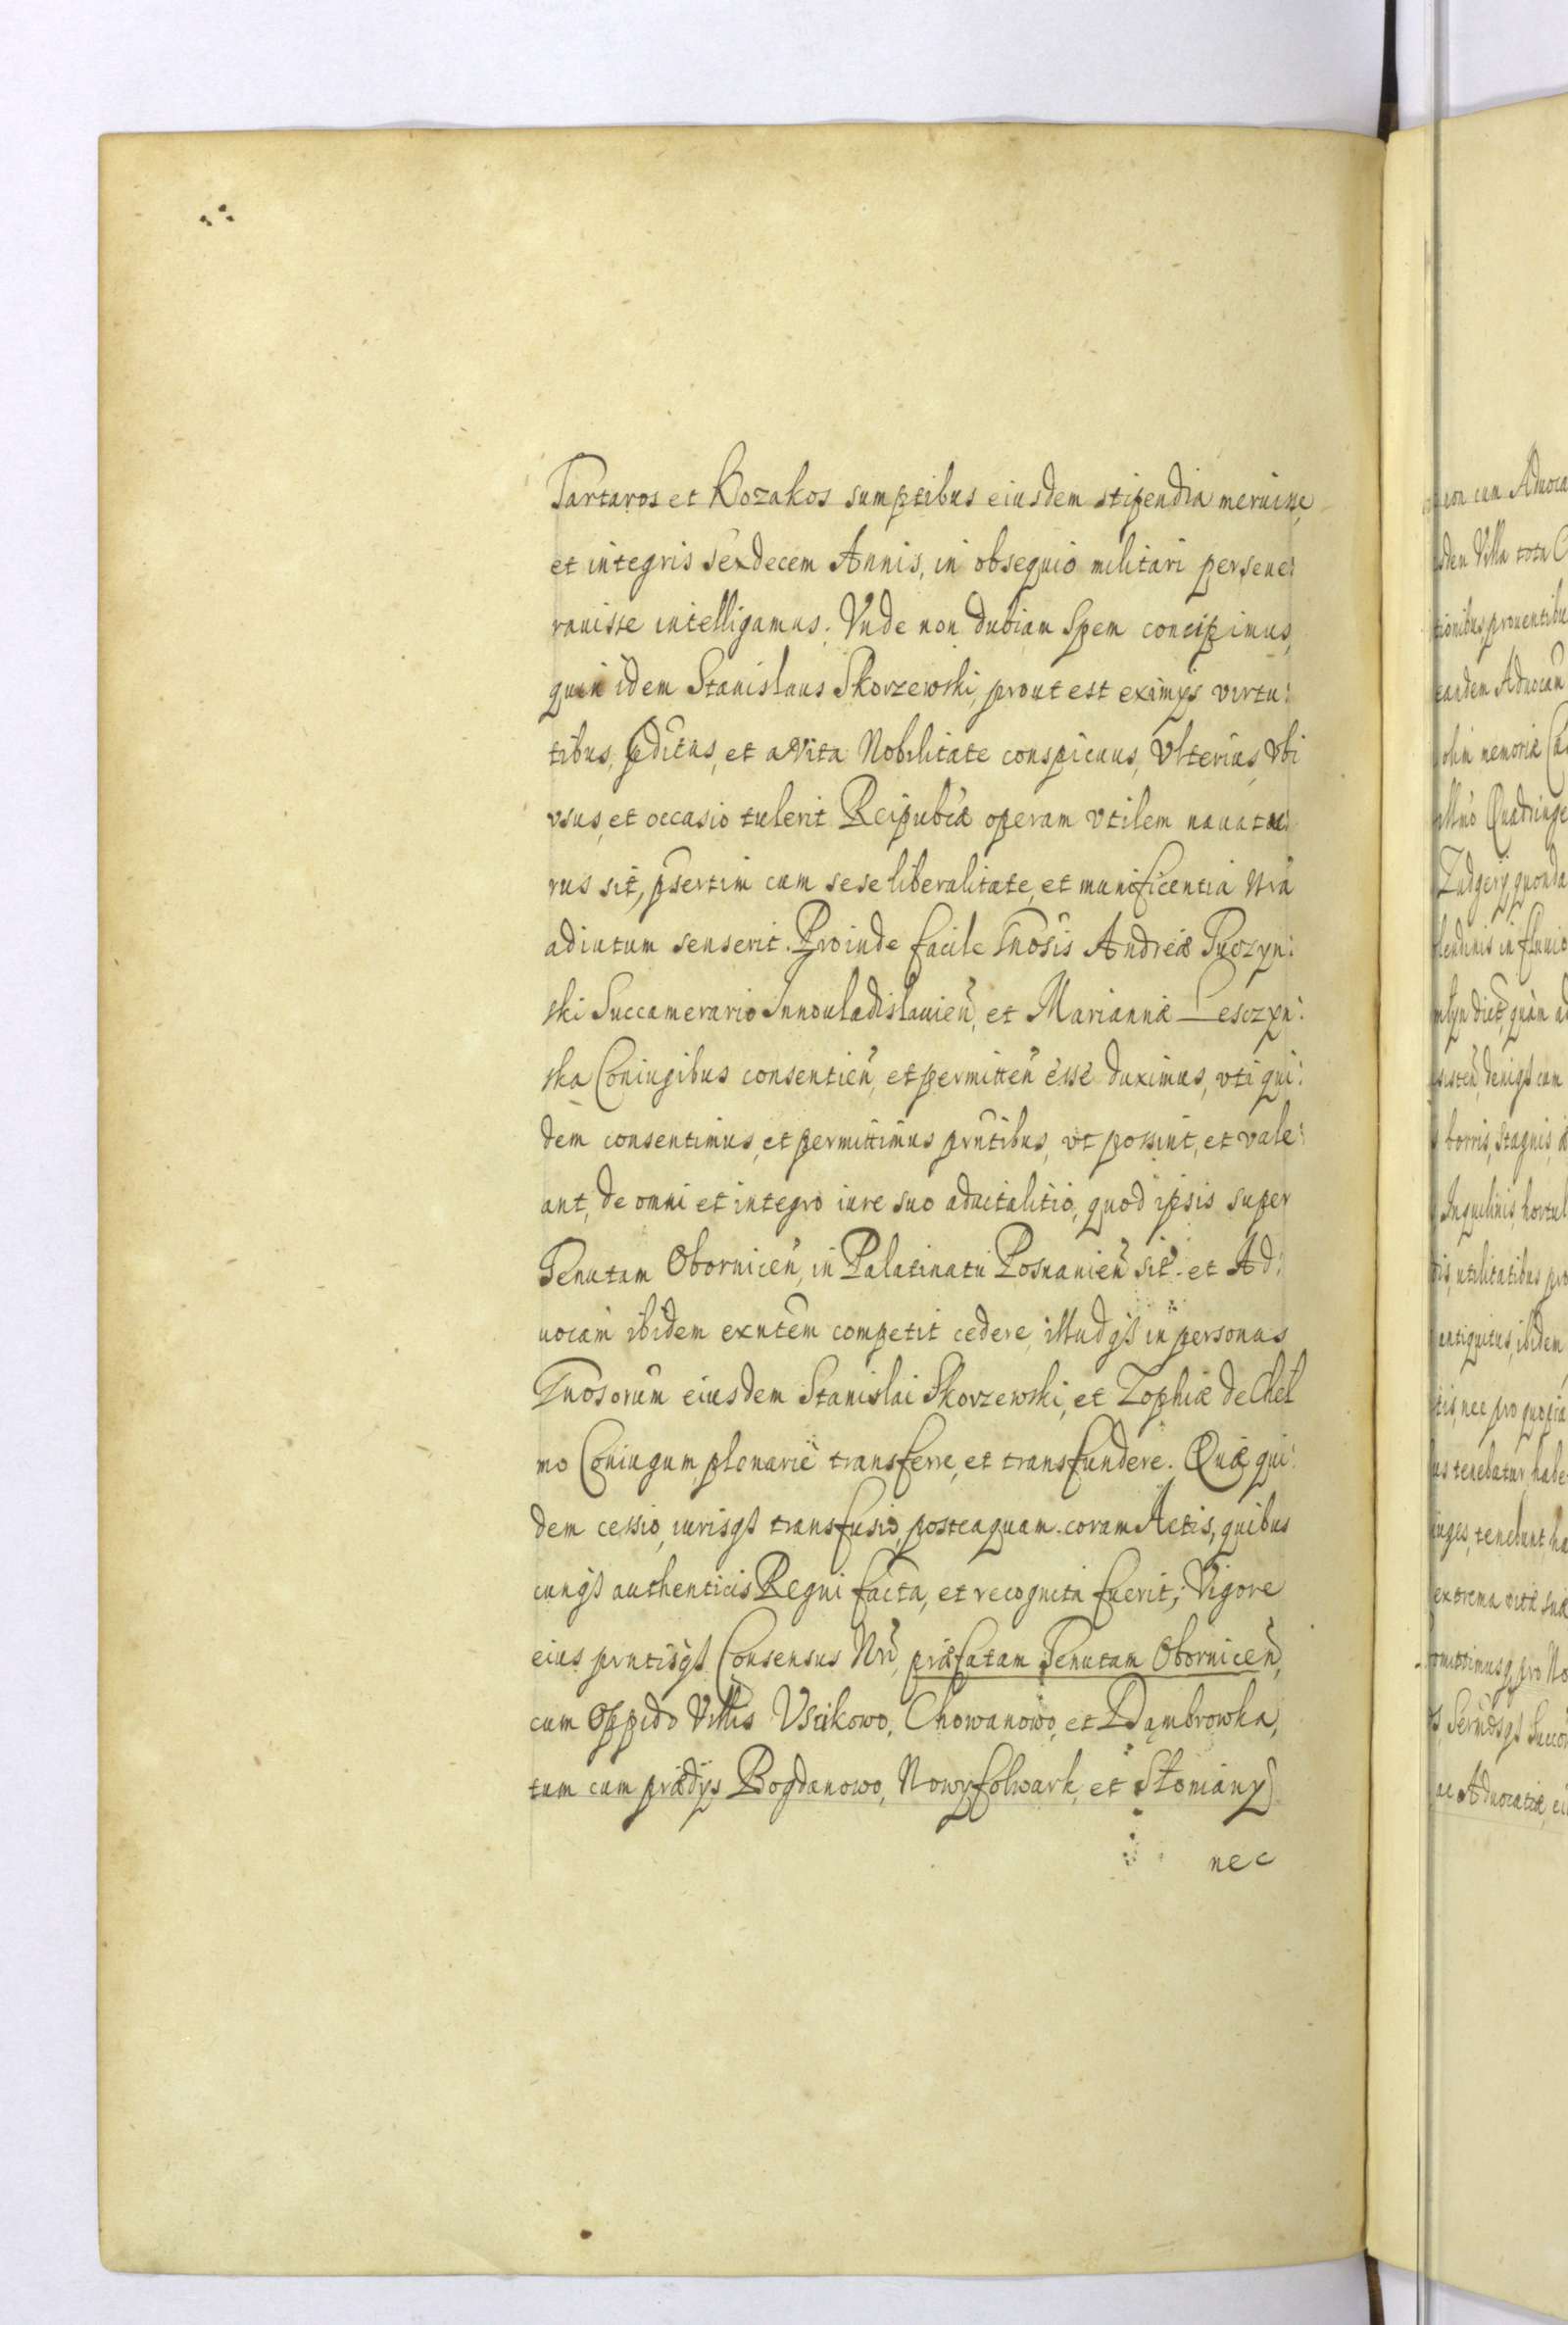 Tartaros et Kozakos sumptibus eiusdem stipendia meruisse
et integris sexdecem Annis, in obsequio militari perseue:
rauisse intelligamus. Vnde non dubiam spem concipimus,
quin idem Stanislaus Skorzewski, prout est eximijs virtu:
tibus, pditus, et aVita Nobilitate conspicuus, Vlterius, Vbi
vsus, et occasio tulerit Reipubcæ operam vtilem nauatu:
rus sit, psertim cum sese liberalitate, et munificentia Nrã
adiutum senserit. Proinde facile Gnosis Andreæ Tuczyn:
ski Succamerario Innouladislauien, et Mariannæ Lesczyn:
ska Coniugibus consentien, et permitten esse duximus, vti qui:
dem consentimus, et permittimus prntibus, vt possint, et vale:
ant, de omni et integro iure suo aduitalitio, quod ipsis super
Tenutam Obornicen, in Palatinatu Posnanien sit. et Ad:
uocam ibidem exntem competit cedere, illudq in personas
Gnosorum eiusdem Stanislai Skorzewski, et Zophiæ de Chel
mo Coniugum, plenarie transferre, et transfundere. Quæ qui:
dem cessio, iurisq transfusio, posteaquam coram Actis, quibus
cunq authenticis Regni facta, et recognita fuerit, Vigore
eius prntisq Consensus Nri, præfatam Tenutam Obornicen,
cum Oppido Villis Vscikowo, Chowanowo, et Dąmbrowka,
tum cum prædijs Bogdanowo, Nowyfolwark, et Słoniany
nec